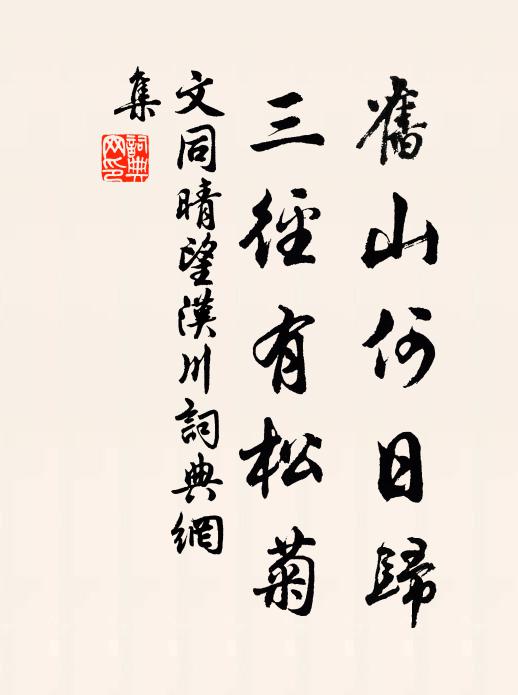 舊山何日歸
三徑有松菊
文同晴望漢川詞典網
集
詞典
网印